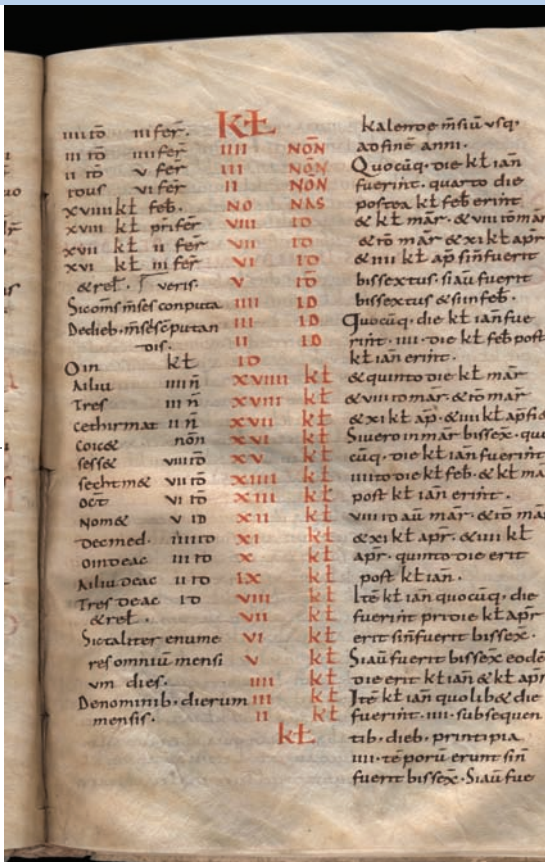 iiii iđ iii fer̄.
iii iđ iiii fer̄
ii iđ v fer̄
idus vi fer̄
xviiii kł feb̄.
xviii kł pri fer̄
xvii kł ii fer̄
xvi kł iii fer̄
& reł. veris.
Sic om̄s m̄ses conputa
De dieb· m̄sēs cōputan
dis.
Oin kł
Ailiu iiii n̄
Tres iii n̄
cethir mat ii n̄
Coic& nōn
sess& viii iđ
secht m& vii iđ
oct̄ vi iđ
Nom& v ID
Decmed. iiii iđ
oin deac iii ID
Ailiu deac ii ID
Tres deac ID
& reł.
Sic taliter enume
res omniū mensi
um dies.
De nominib· dierum
mensis.
KŁ
IIII NON̄
III NON̄
II NON
NO NAS
VIII ID
VII ID
VI ID
V ID̄
IIII ID
III ID
II ID
ID
XVIIII kł
XVIII kł
XVII kł
XVI kł
XV kł
XIIII kł
XIII kł
XII kł
XI kł
X kł
IX kł
VIII kł
VII kł
VI kł
V kł
IIII kł
III kł
II kł
kł
kalende m̄siū usq·
ad finē anni.
Quocūq· die kł ian̄
fuerint. quarto die
postea kł feb̄ erint
& kł mar̄. & viii iđ mar̄
& iđ mar̄ & xi kł apr̄
& iiii kł ap̄ sin̄ fuerit
bissextus. si aū fuerit
bissextus & si in feb̄.
Quocūq· die kł ian̄ fue
rint. iiii· die kł feb̄ post
kł ian̄ erint.
& quinto die kł mar̄
& viii iđ mar̄· & iđ mar̄
& xi kł ap̄· & iiii kł ap̄
Si uero in mar̄ bissex̄· quo
cūq· die kł ian̄ fuerint
iiii to die kł feb̄· & kł
post kł ian̄ erint.
viii iđ aū mar̄· & iđ
& xi kł apr̄· & iiii kł
apr̄· quinto die erit
post kł ian̄.
Itē kł ian̄ quocūq· die
fuerint pridie kł apr̄
erit sin̄ fuerit bissex̄.
Si aū fuerit bissex̄ eodē
die erit kł ian̄ & kł apr̄
Itē kł ian̄ quolib& die
fuerint· iiii· subsequen
tib· dieb· principia
iiii· tēporū erunt sin̄
fuerit bissex̄· Si aū fue